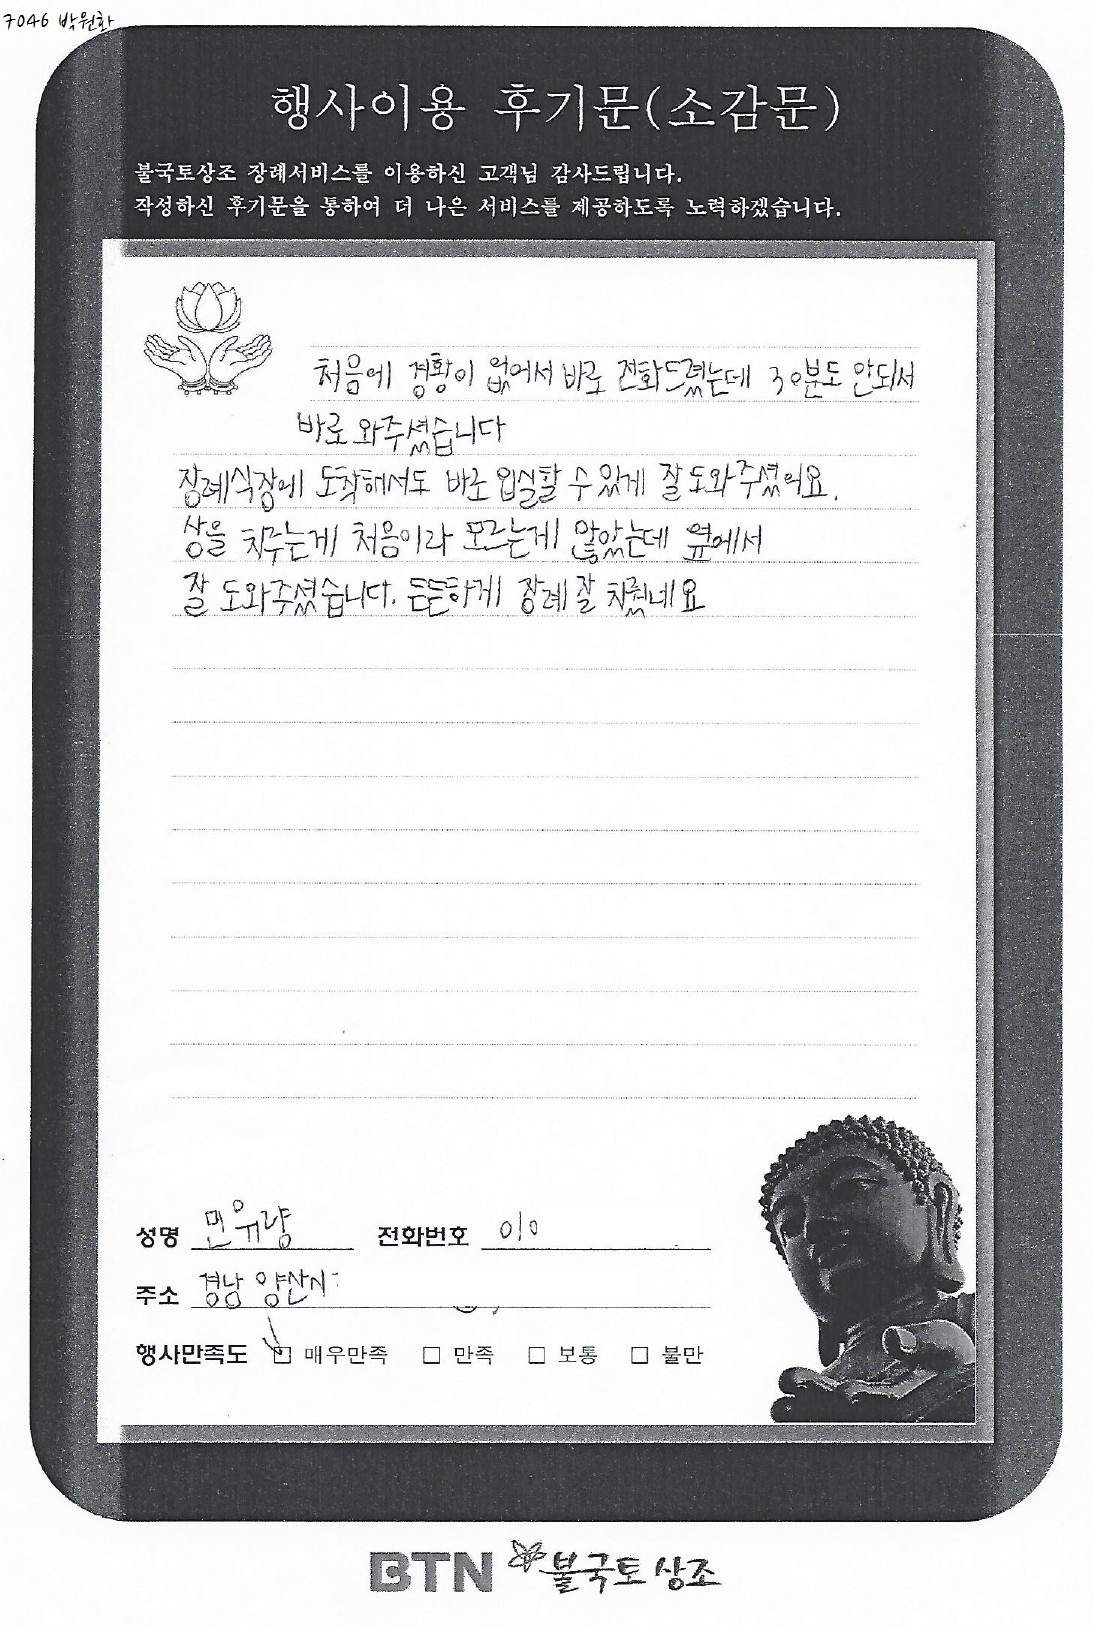 7046 박원환
행사이용 후기문(소감문)
불국토상조 장례서비스를 이용하신 고객님 감사드립니다.
작성하신 후기문을 통하여 더 나은 서비스를 제공하도록 노력하겠습니다.
처음에 경황이 없어서 바로 전화드렸는데 30분도 안되서
바로 와주셨습니다
장례식장에 도착해서도 바로 입실할 수 있게 잘 도와주셨어요.
상을 치루는게 처음이라 모르는게 많았는데 옆에서
잘 도와주셨습니다. 든든하게 장례 잘 치뤘네요
성명 민유량 전화번호 010
주소 경남 양산시
행사만족도 □ 매우만족 □ 만족 □ 보통 □ 불만
BTN 불국토 상조